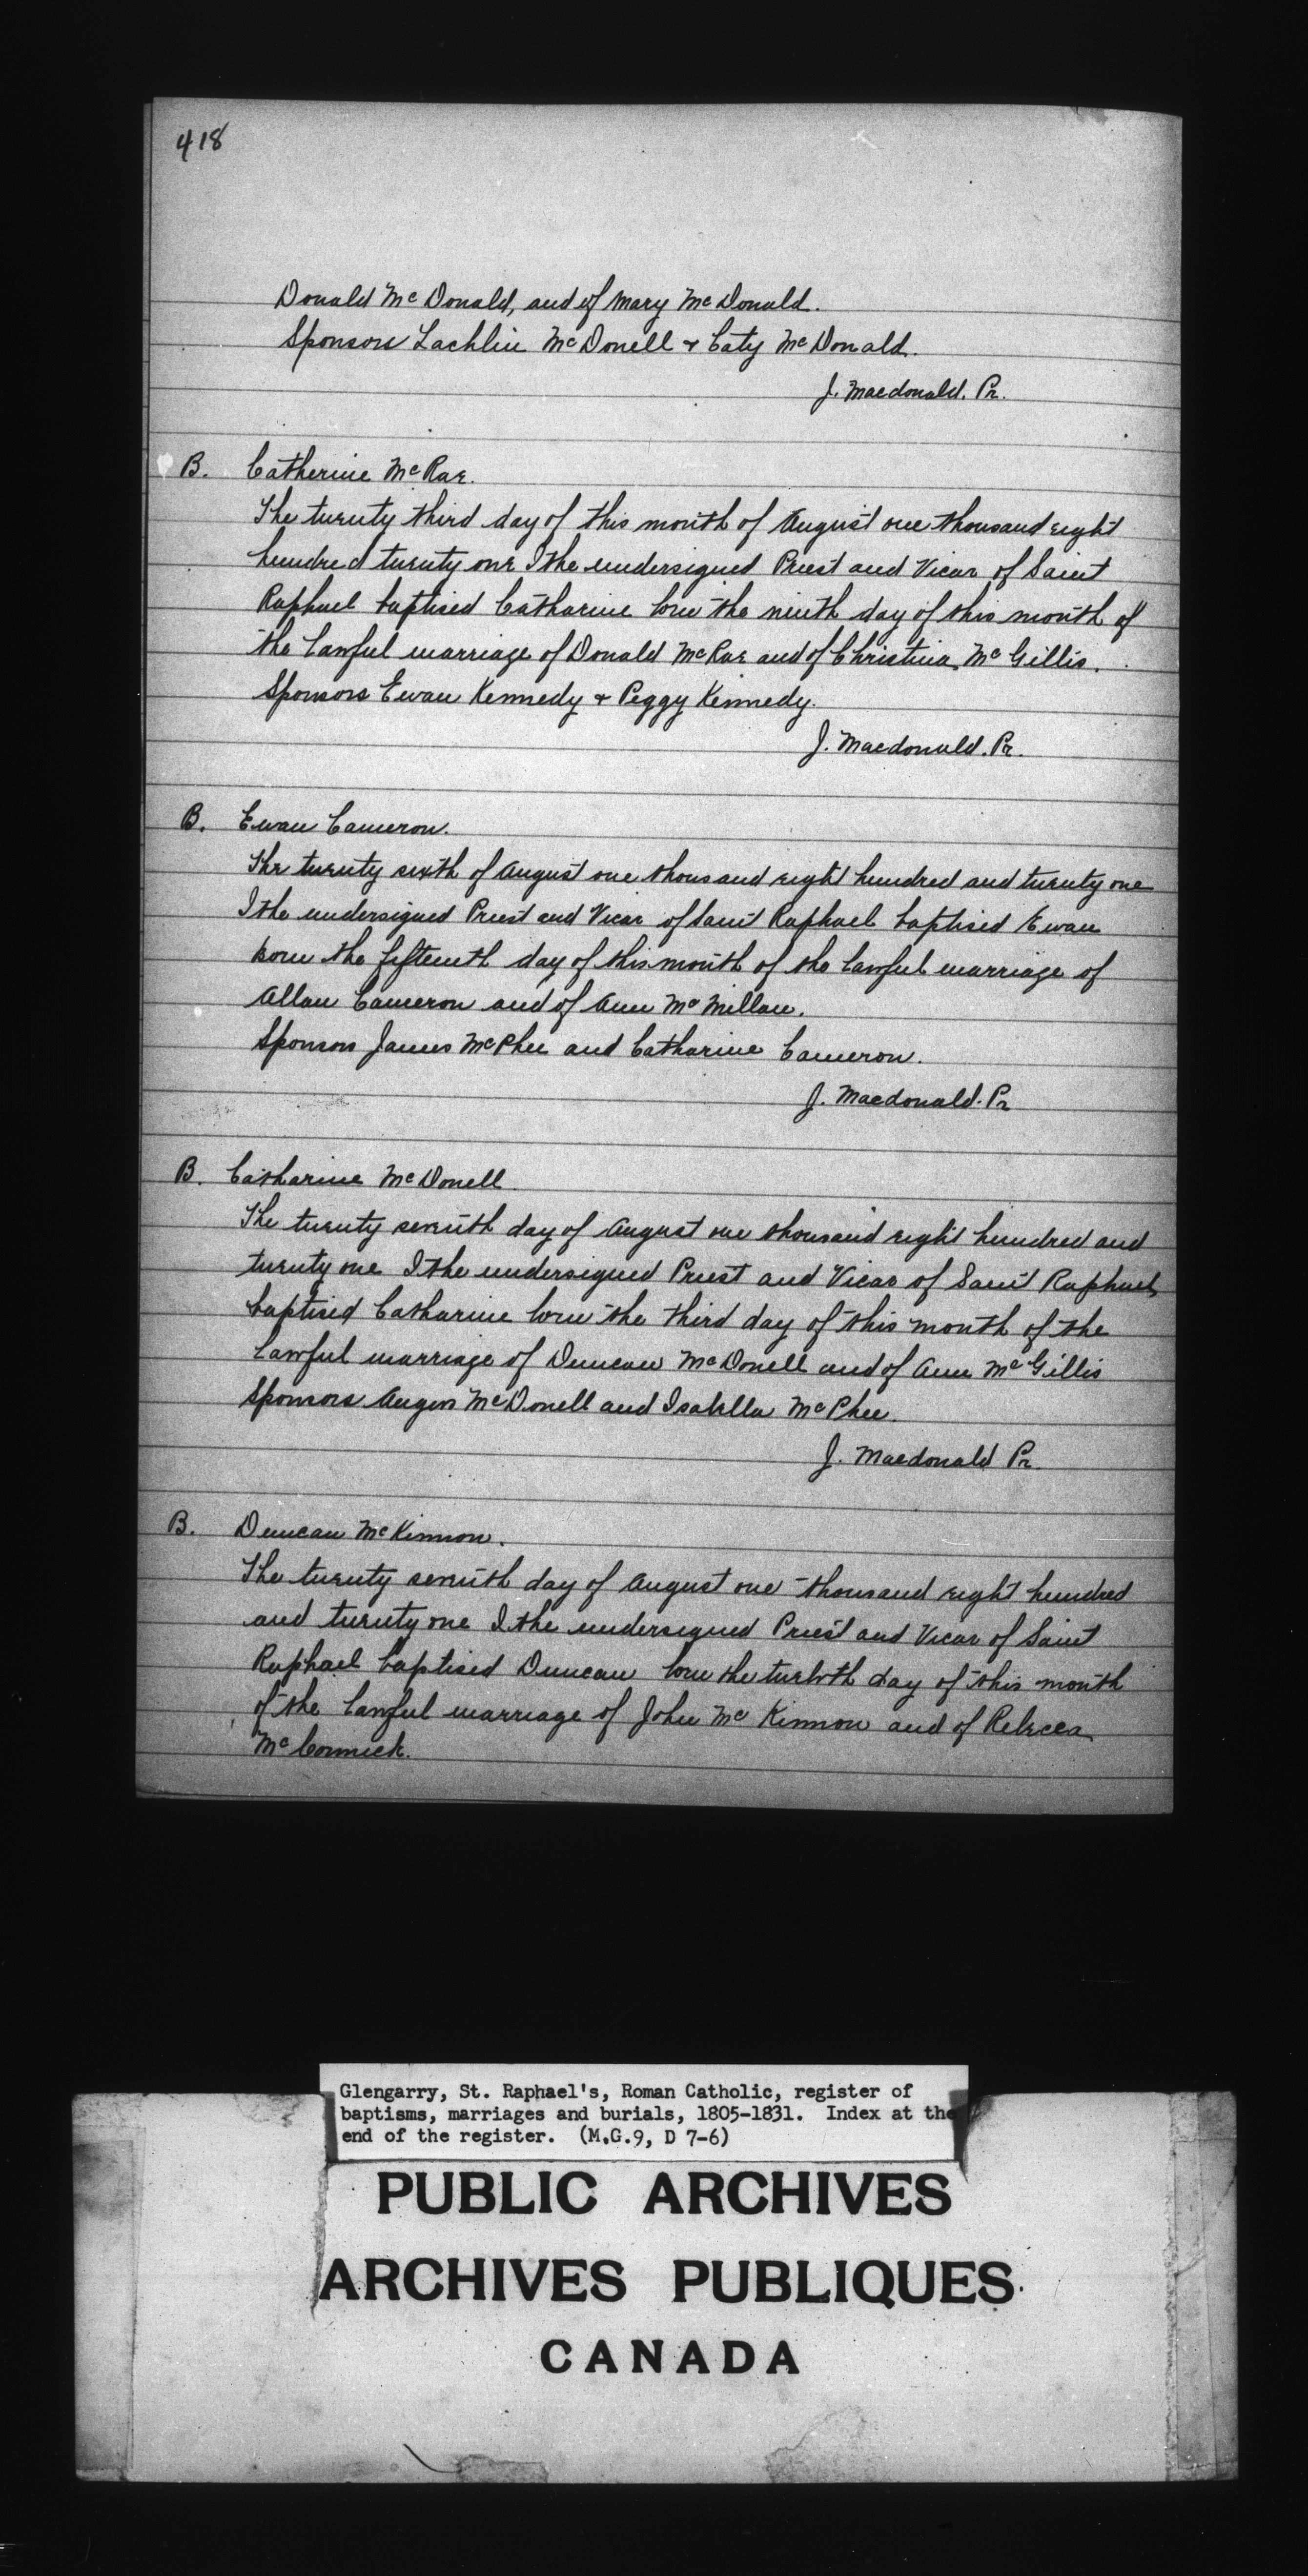 418
Donald McDonald, and of Mary McDonald.
Sponsors Lachlin McDonell & Caty McDonald.
J. Macdonald. Pr.
B. Catherine McRae.
The twenty third day of this month of August one thousand eight
hundred twenty one I the undersigned Priest and Vicar of Saint
Raphael baptised Catharine born the ninth day of this month of
the lawful marriage of Donald McRae and of Christina McGillis.
Sponsors Ewan Kennedy & Peggy Kennedy.
J. Macdonald. Pr.
B. Ewan Cameron.
The twenty sixth of August one thousand eight hundred and twenty one
I the undersigned Priest and Vicar of Saint Raphael baptised Ewan
born the fifteenth day of this month of the lawful marriage of
Allan Cameron and of Ann McMillan.
Sponsors James McPhee and Catharine Cameron.
J. Macdonald. Pr
B. Catharine McDonell.
The twenty seventh day of August one thousand eight hundred and
twenty one I the undersigned Priest and Vicar of Saint Raphael
baptised Catharine born the third day of this month of the
lawful marriage of Duncan McDonell and of Ann McGillis
Sponsors Angus McDonell and Isabella McPhee.
J. Macdonald Pr.
B. Duncan McKinnon.
The twenty seventh day of August one thousand eight hundred
and twenty one I the undersigned Priest and Vicar of Saint
Raphael baptised Duncan born the twelvth day of this month
of the lawful marriage of John McKinnon and of Rebecca
McCormick.
Glengarry, St. Raphael's, Roman Catholic, register of
baptisms, marriages and burials, 1805-1831. Index at the
end of the register. (M.G.9, D 7-6)
PUBLIC ARCHIVES
ARCHIVES PUBLIQUES
CANADA